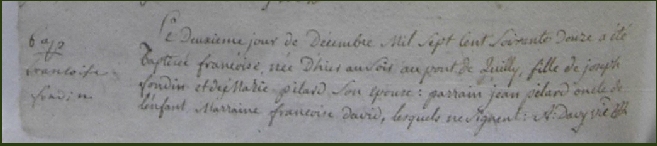 Le Deuxieme jour de Décembre Mil Sept Cent Soixente Douze a été
Baptisée francoise, née D'hier au Soir au pont de Quilly, fille de joseph
fondin et de Marie pelard Son épouse : parrain jean pelard oncle de
L'enfant Marraine francoise david, lesquels ne Signent : N. Davy
francoise
fondin